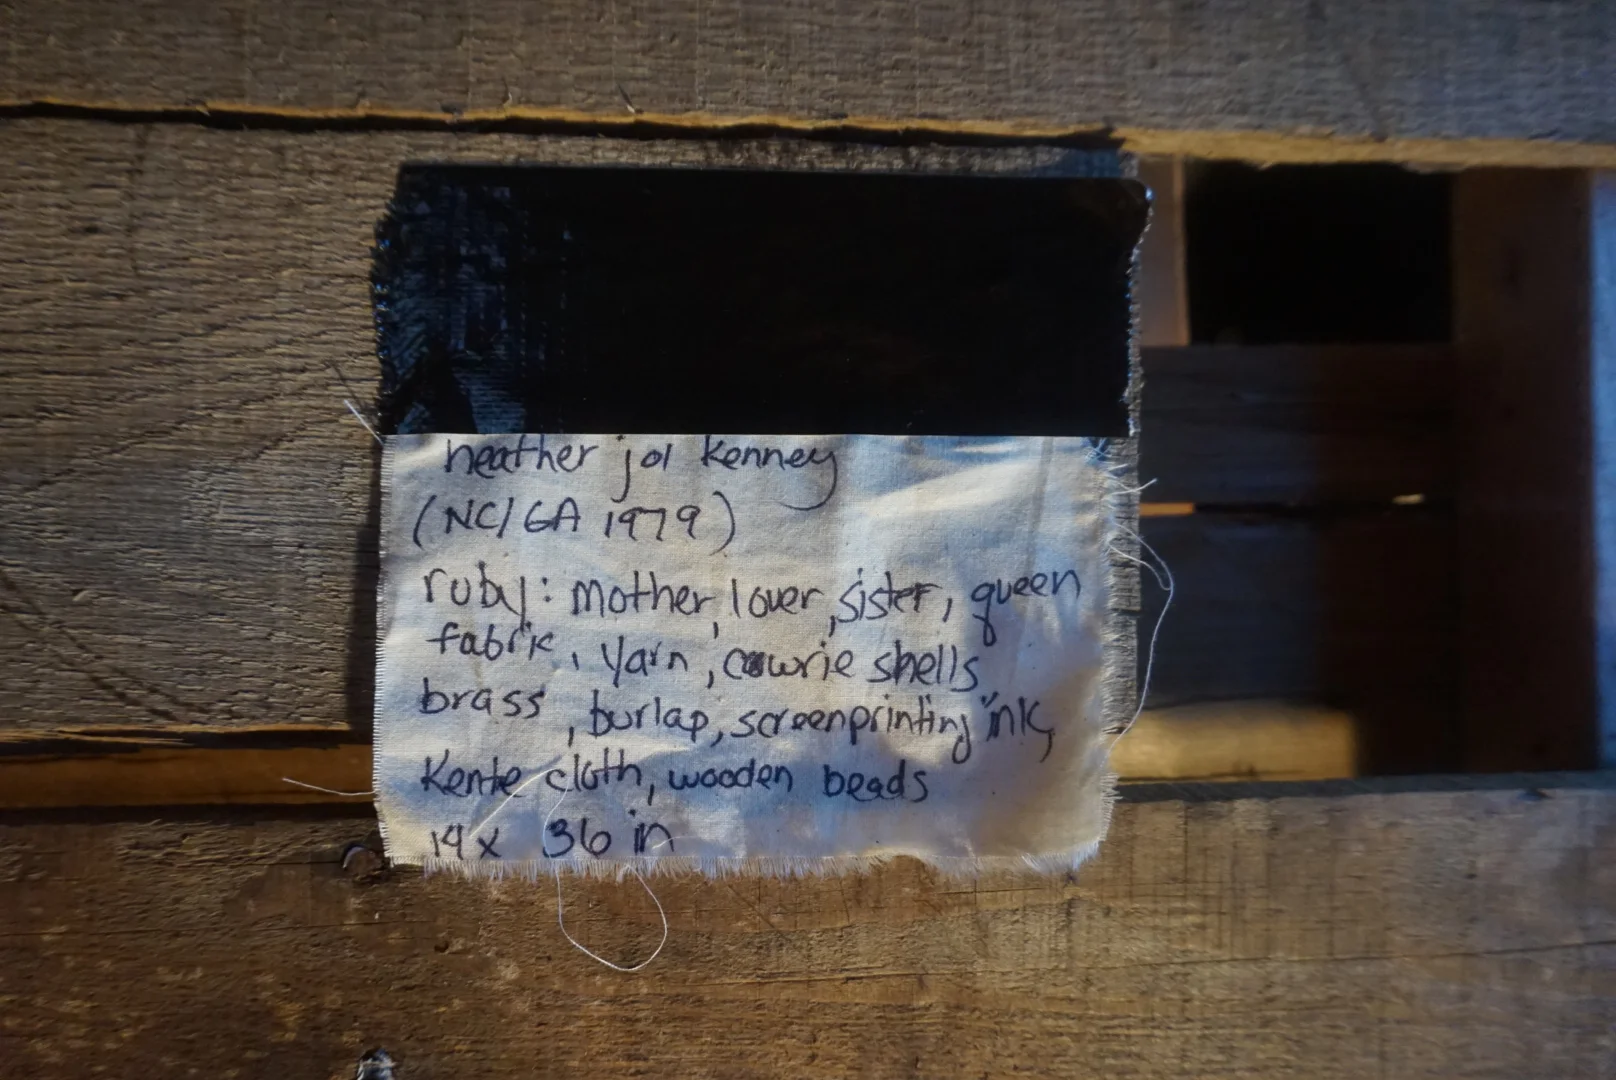 heather joi kenney
(NC/GA 1979)
ruby: mother, lover, sister, queen
fabric, yarn, cowrie shells
brass, burlap, screenprinting ink,
Kente cloth, wooden beads
14 x 36 in